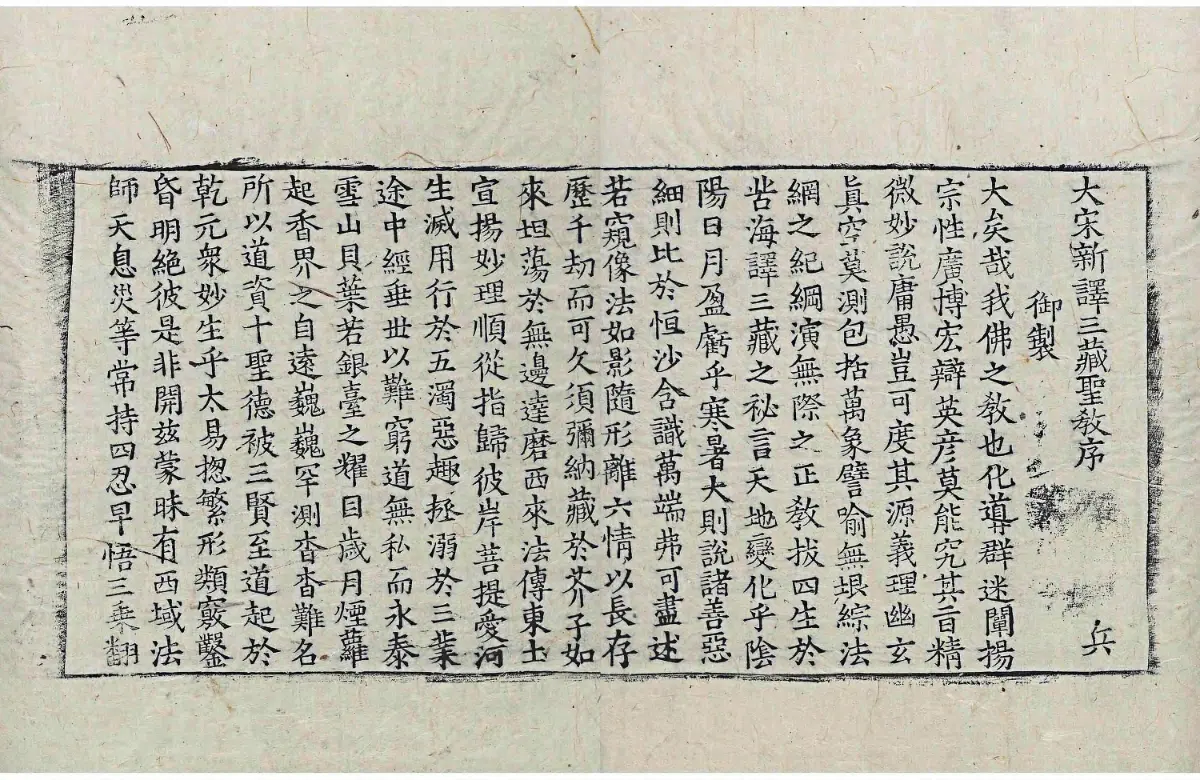 大宋新譯三藏聖教序　兵
御製
大矣哉我佛之教也化導群迷闡揚
宗性廣博宏辯英彦莫能究其旨精
微妙說庸愚豈可度其源義理幽玄
眞空莫測包括萬象譬喻無垠綜法
網之紀綱演無際之正教拔四生於
苦海譯三藏之祕言天地變化乎陰
陽日月盈虧乎寒暑大則說諸善惡
細則比於恒沙含識萬端弗可盡述
若窺像法如影隨形離六情以長存
歷千劫而可久須彌納藏於芥子如
來坦蕩於無邊達磨西來法傳東土
宣揚妙理順從指歸彼岸菩提愛河
生滅用行於五濁惡趣拯溺於三業
途中經垂丗以難窮道無私而永泰
雪山貝葉若銀臺之耀目歲月煙蘿
起香界之自遠巍巍罕測杳杳難名
所以道資十聖德被三賢至道起於
乾元衆妙生乎太易揔繁形類竅鑿
昏明絕彼是非開兹蒙昧有西域法
師天息災等常持四忍早悟三乘翻